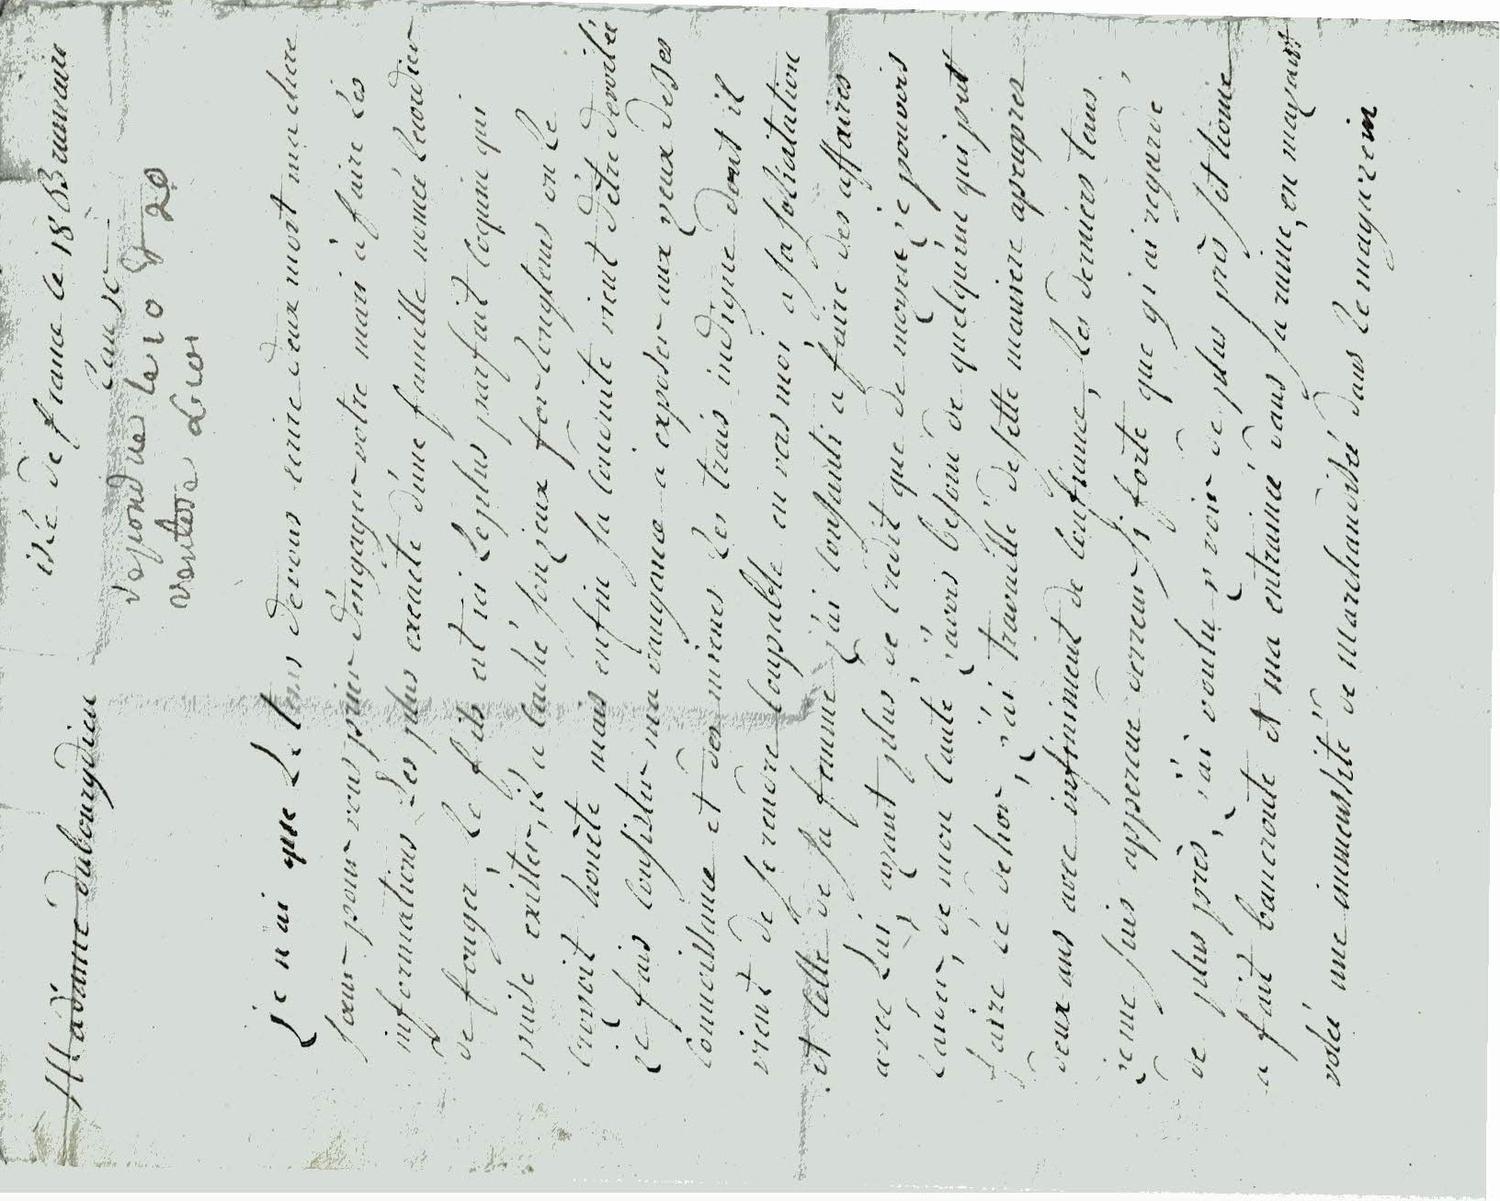 isle de france le 18 Brumaire
l'an 10
Madame dubourgdieu
repondue le 10 &
je n'ai que le tems de vous ecrire deux mots ma chere
sœur pour vous prier d'engager votre mari à faire les
informations les plus exacte d'une famille nomée lecordier
de fouger, le fils est ici le plus parfait coquin qui
puise exister, il a taché son jeux fort longtems on le
croioit honète mais enfin sa conduite vient d'être devoilée
je fais consister ma vangence a exposer aux yeux de ses
connoissance et des miennes les trais indigne dont il
vient de se rendre coupable en vers moi a sa solicitation
et celle de sa famme j'ai consenti a faire des affaires
avec lui, ayant plus de credit que de moyen je pouvois
de mon coté j'avois besoin de quelqu'un qui put
faire le dehor, j'ai travaillé de sette maniere apeupres
deux ans avec infiniment de confiance, les derniers tems
je me suis apperçue d'erreur si forte que j'ai regardé
de plus près, j'ai voulu y voir de plus près set home
a fait bancroute et ma entrainé dans sa ruine, en mayant
volée une immensité de marchandise dans le magazin